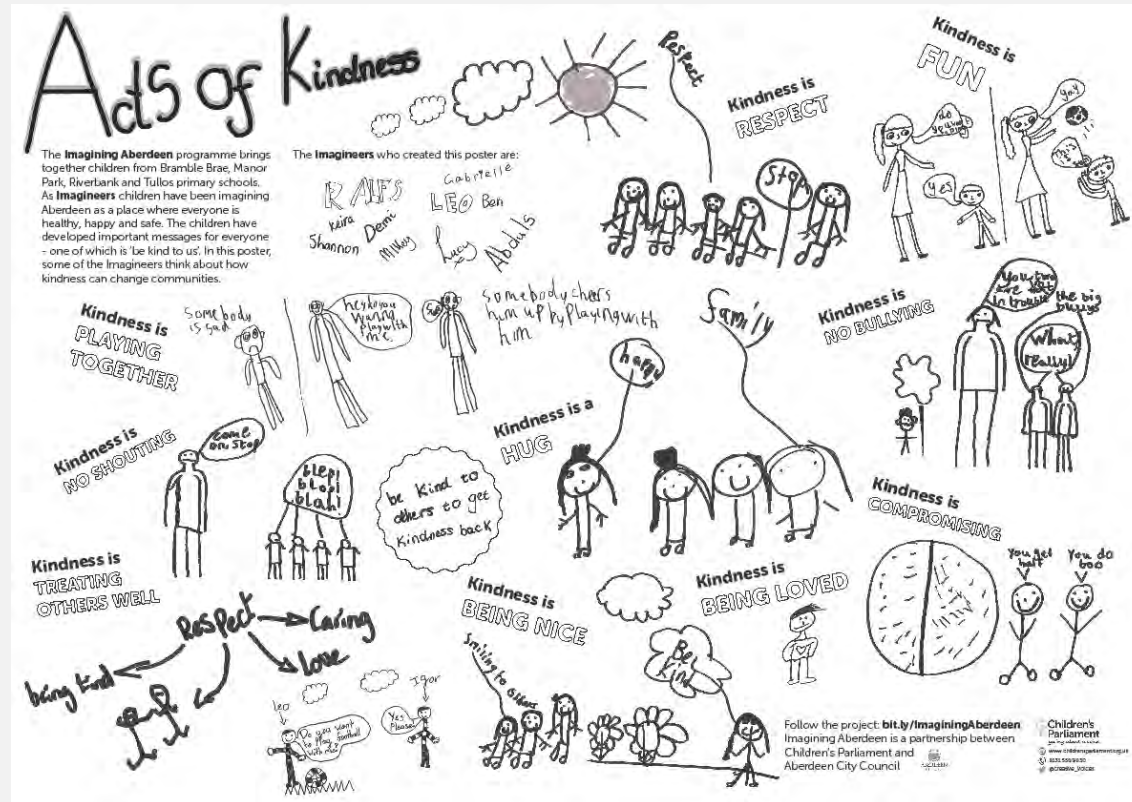 Acts of Kindness
The Imagining Aberdeen programme brings
together children from Bramble Brae, Manor
Park, Riverbank and Tullos primary schools.
As Imagineers children have been imagining
Aberdeen as a place where everyone is
healthy, happy and safe. The children have
developed important messages for everyone
- one of which is 'be kind to us'. In this poster,
some of the Imagineers think about how
kindness can change communities.
The Imagineers who created this poster are:
Gabrielle
LEO Ben
Keira
Demi
Shannon
Milkay
Lucy
Abduls
Respect
Kindness is
RESPECT
Stop
Kindness is
FUN
do
yay
yes
Kindness is
PLAYING
TOGETHER
Somebody
is sad
hey do you
wanna
play with
me.
Somebody chers
him up by playing with
him
Kindness is
NO SHOUTING
come
on stop
blep!
blop!
blah!
be kind to
others to get
kindness back
Kindness is a
HUG
happy
family
Kindness is
NO BULLYING
You two
are
in trouble
the big
What
really!
Kindness is
COMPROMISING
You get
half
You do
too
Kindness is
TREATING
OTHERS WELL
Respect
Caring
love
being kind
leo
Igor
Do you want
to play football
with me?
Yes
Please
Kindness is
BEING NICE
Smiling to others
Kindness is
BEING LOVED
Be
Kind
Follow the project: bit.ly/ImaginingAberdeen
Imagining Aberdeen is a partnership between
Children's Parliament and
Aberdeen City Council
Children's
Parliament
@creative_voices